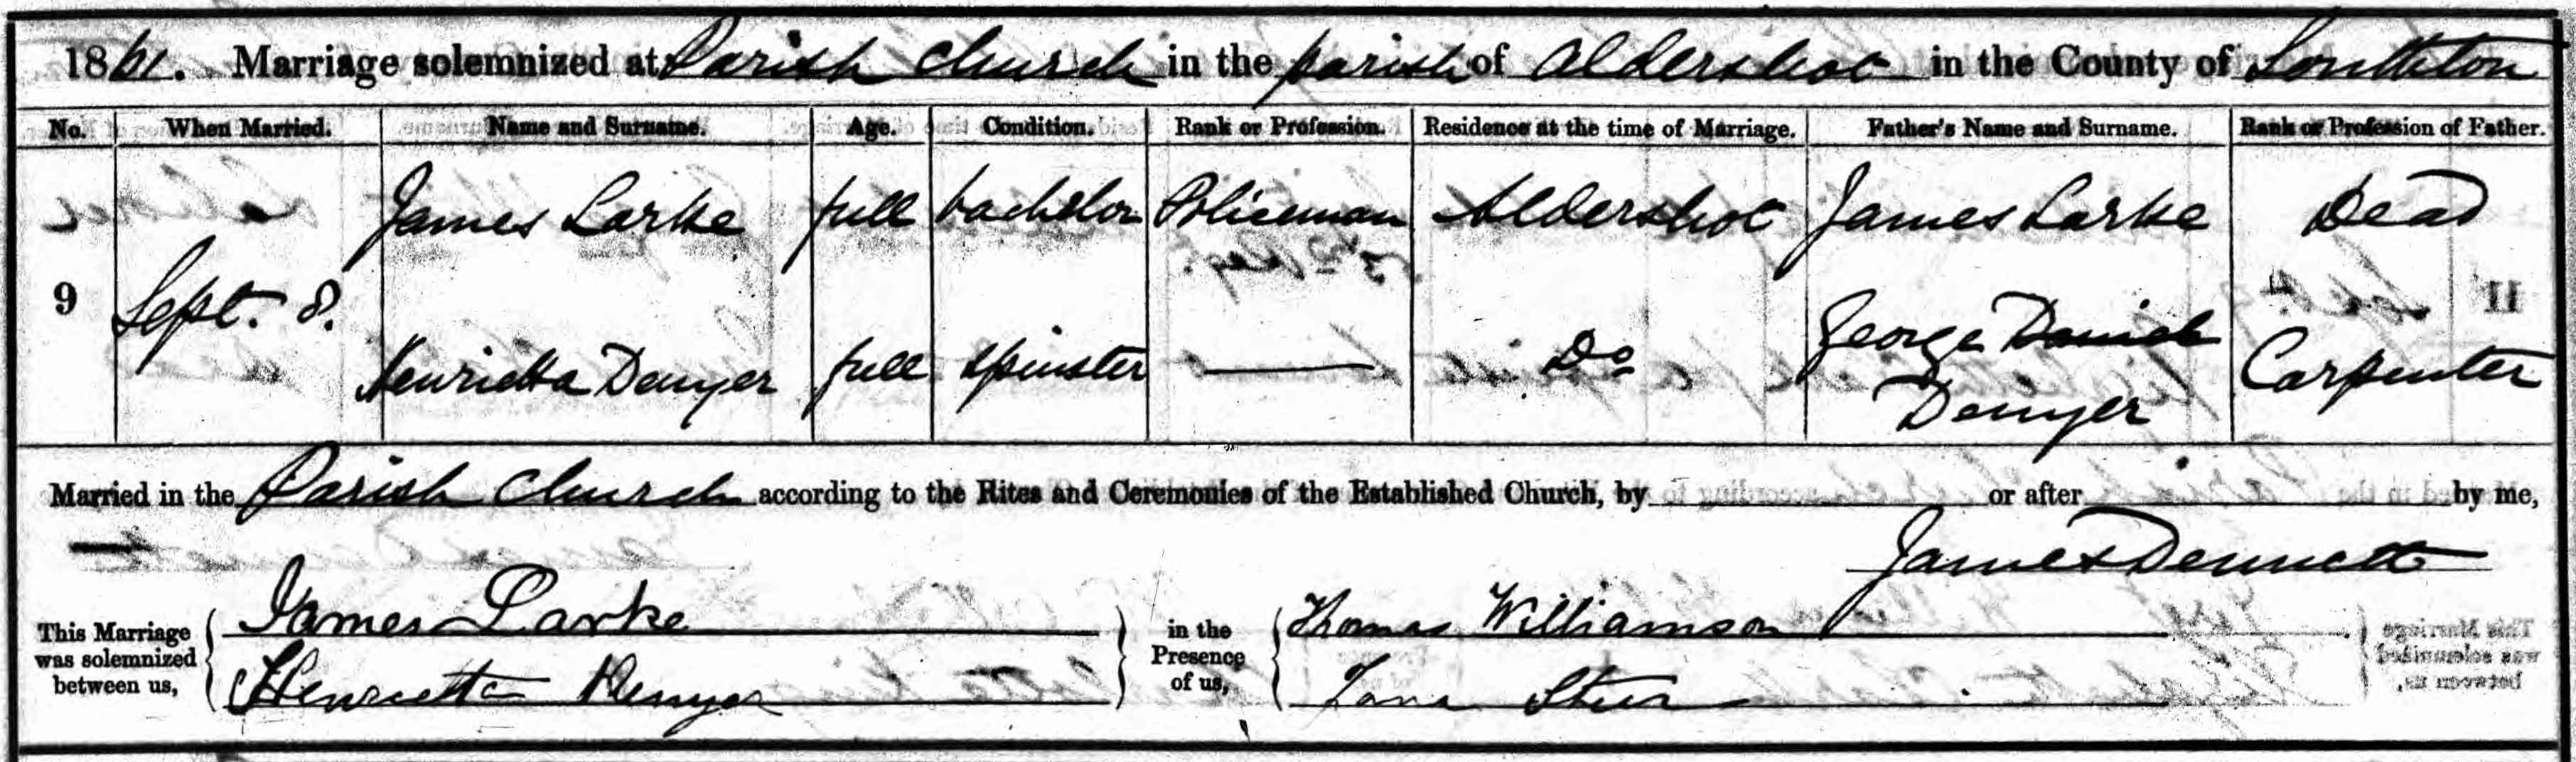 1861. Marriage solemnized at Parish Church in the parish of Aldershot in the County of Southton
No. When Married. Name and Surname. Age. Condition. Rank or Profession. Residence at the time of Marriage. Father's Name and Surname. Rank or Profession of Father.
James Larke full bachelor Policeman Aldershot James Larke Dead
9 Sept. 8.
Henrietta Denyer full spinster — Do George Daniel Denyer Carpenter
Married in the Parish Church according to the Rites and Ceremonies of the Established Church, by or after by me,
James Dennett
This Marriage was solemnized between us, James Larke Henrietta Denyer in the Presence of us, Thomas Williamson